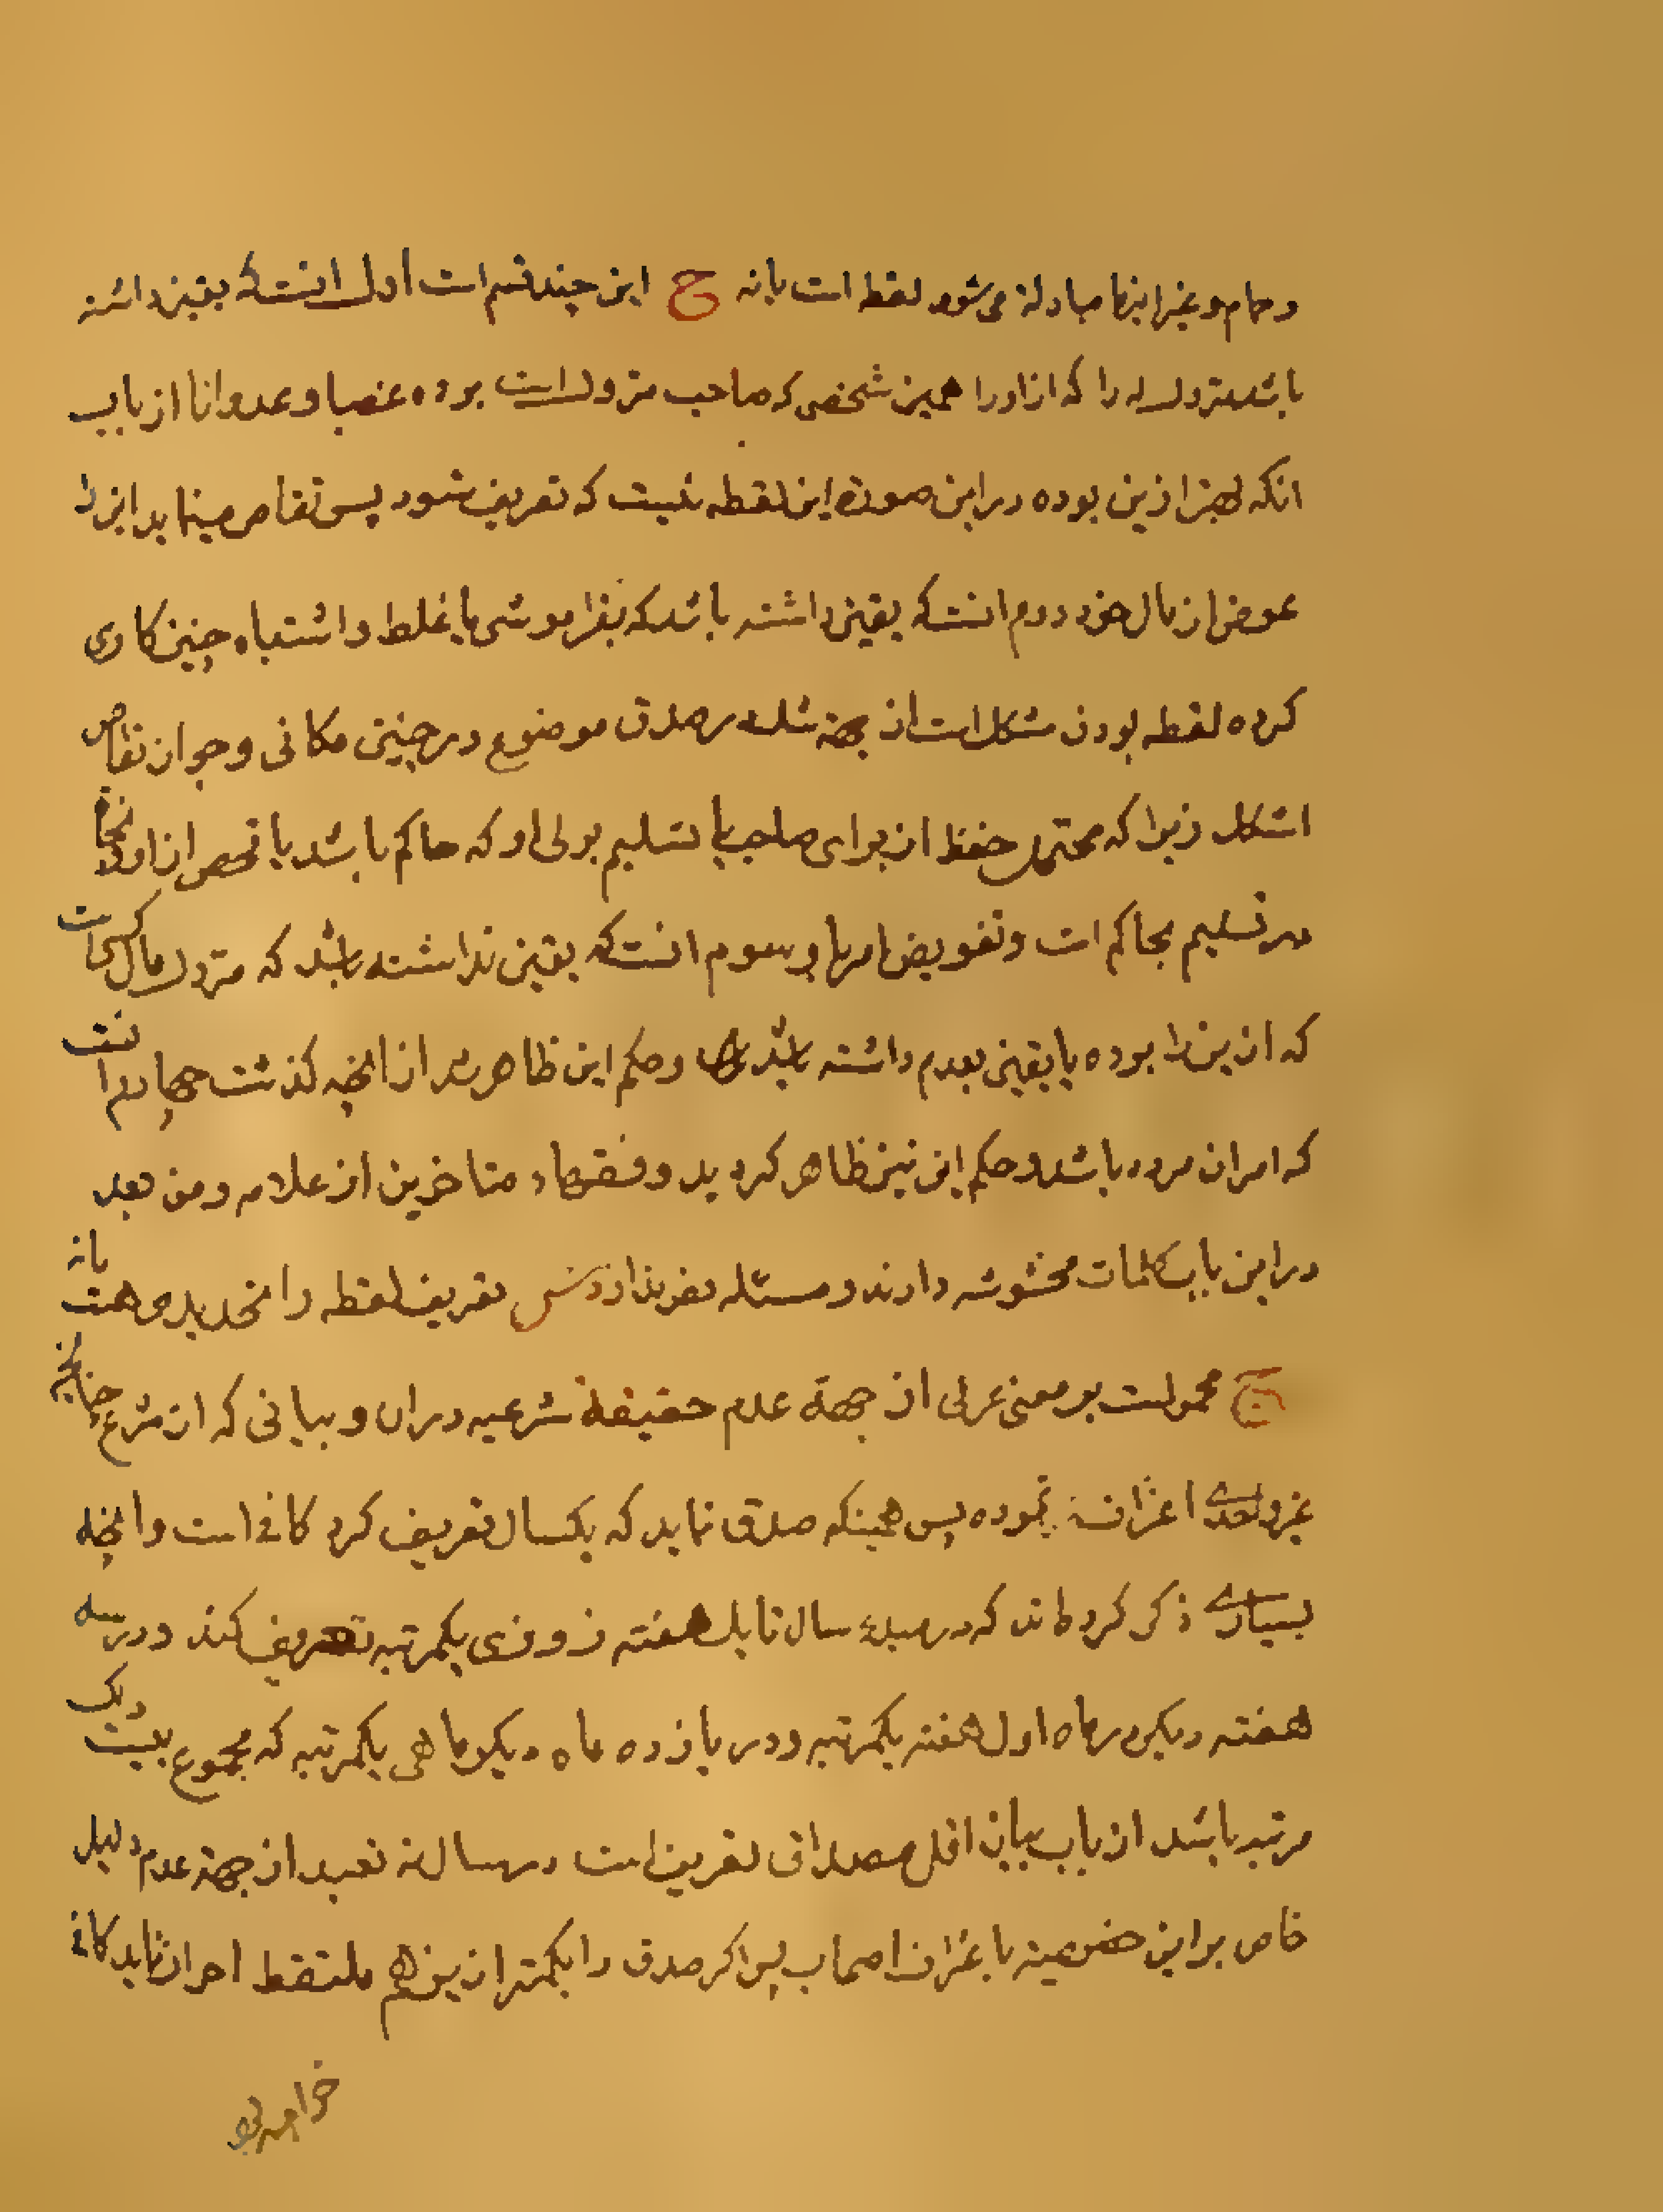 وحمام وغیر اینها مبادلة می شود لقطه است یا نه ج این چند قسم است اول انست که یقین داشته
باشد متروک له را که ازاو را همین شخصی که صاحب متروک است بوده غصبا وعدوانا از باب
انکه بهتر ازین بوده در این صورة این لقطه نیست که تعریف شود پس تقاص مینماید این را
عوض از مال خود دوم انست که یقین داشته باشد که بفراموشی یا غلط واشتباه چنین کاری
کرده لقطه بودن مشکل است از جهة شک در صدق موضوع در چنین مکانی وجواز تقاص
اشکل زیرا که محتمل حفظ از برای صاحب یا تسلیم بولی او که حاکم باشد یا فحص از او
در تسلیم بحاکم است وتفویض امر باو سوم انست که یقین نداشته باشد که متروک مال کسی است
که ازین را بوده یا یقین بعدم داشته باشد وحکم این ظاهر شد از انچه کذشت چهارم انست
که امر ان مردد باشد وحکم این نیز ظاهر کردید وفقهاء متاخرین از علامه ومن بعد
در این باب کلمات مخشوشه دارند ومسئله س تعریف لقطه را تحدیدی هست یا نه
ج محمولست بر معنی عرفی از جهة عدم حقیقة شرعیه در ان وبیانی که از شرع چنانچه
غیر واحدی اعتراف نموده پس همینکه صدق نماید که یکسال تعریف کرد کافی است وانچه
بسیاری ذکر کرده اند که در مبدء سال تا یک هفته روزی یکمرتبه تعریف کند ودر سه
هفته دیکر در ماه اول هفته یکمرتبه ودر یازده ماه دیکر ماهی یکمرتبه که مجموع بیست ویک
مرتبه باشد از باب بیان اقل مصداق تعریف است در سال نه تعبد از جهة عدم دلیل
خاص بر این خصوصیة باعتراف اصحاب پس اکر صدق را بکمتر ازین هم ملتقط احراز نماید کافی